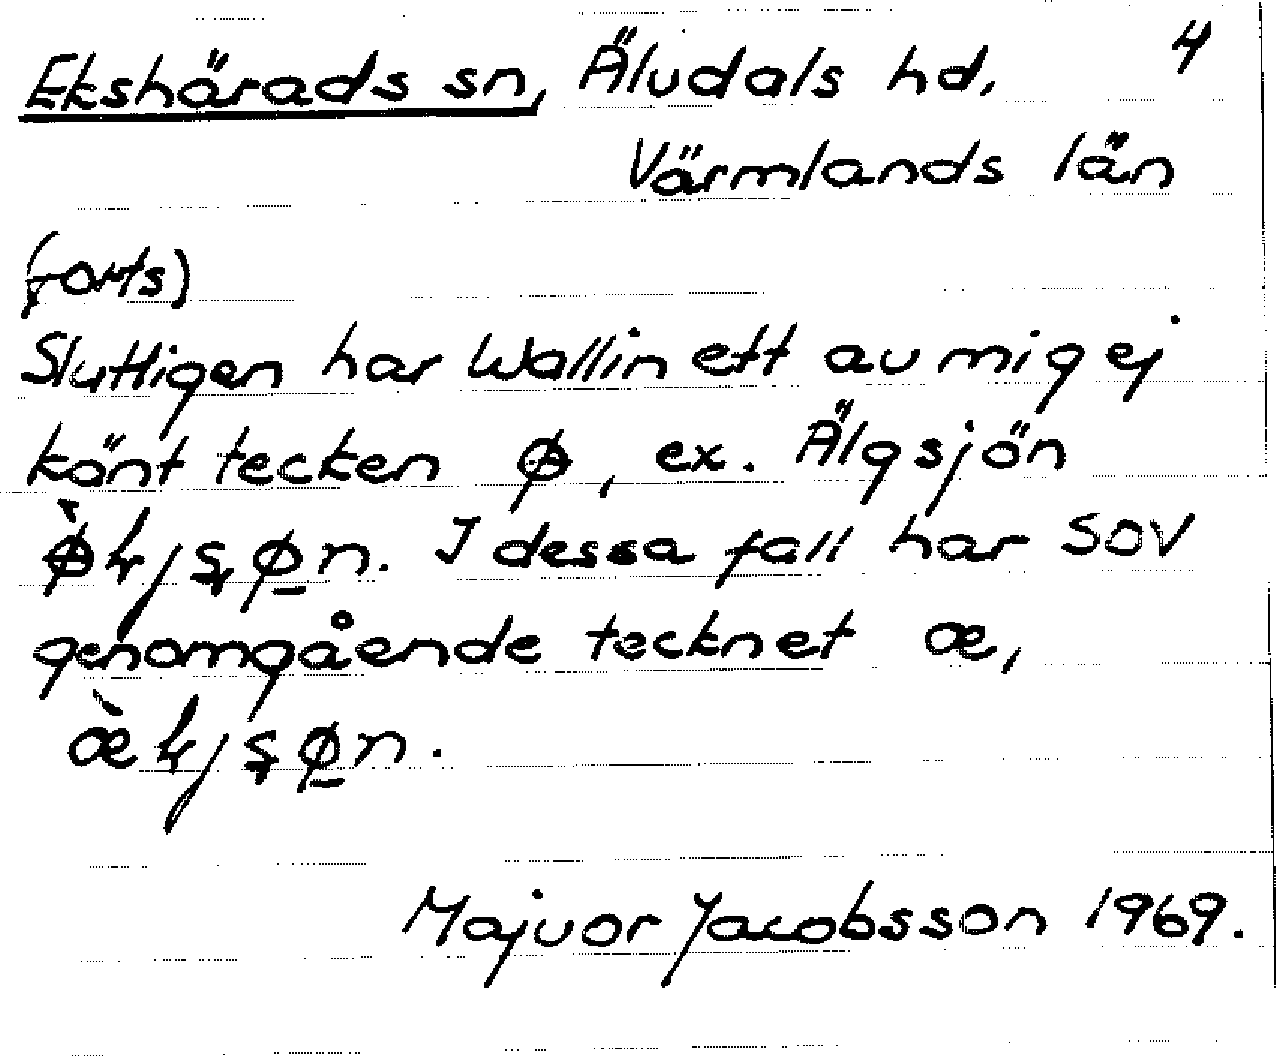 Ekshärads sn, Älvdals hd. 4
Värmlands län
(forts)
Slutligen har Wallin ett av mig ej
känt tecken ꬿ, ex. Älgsjön
. I dessa fall har SOV
genomgående tecknet æ,
Majvor Jacobsson 1969.